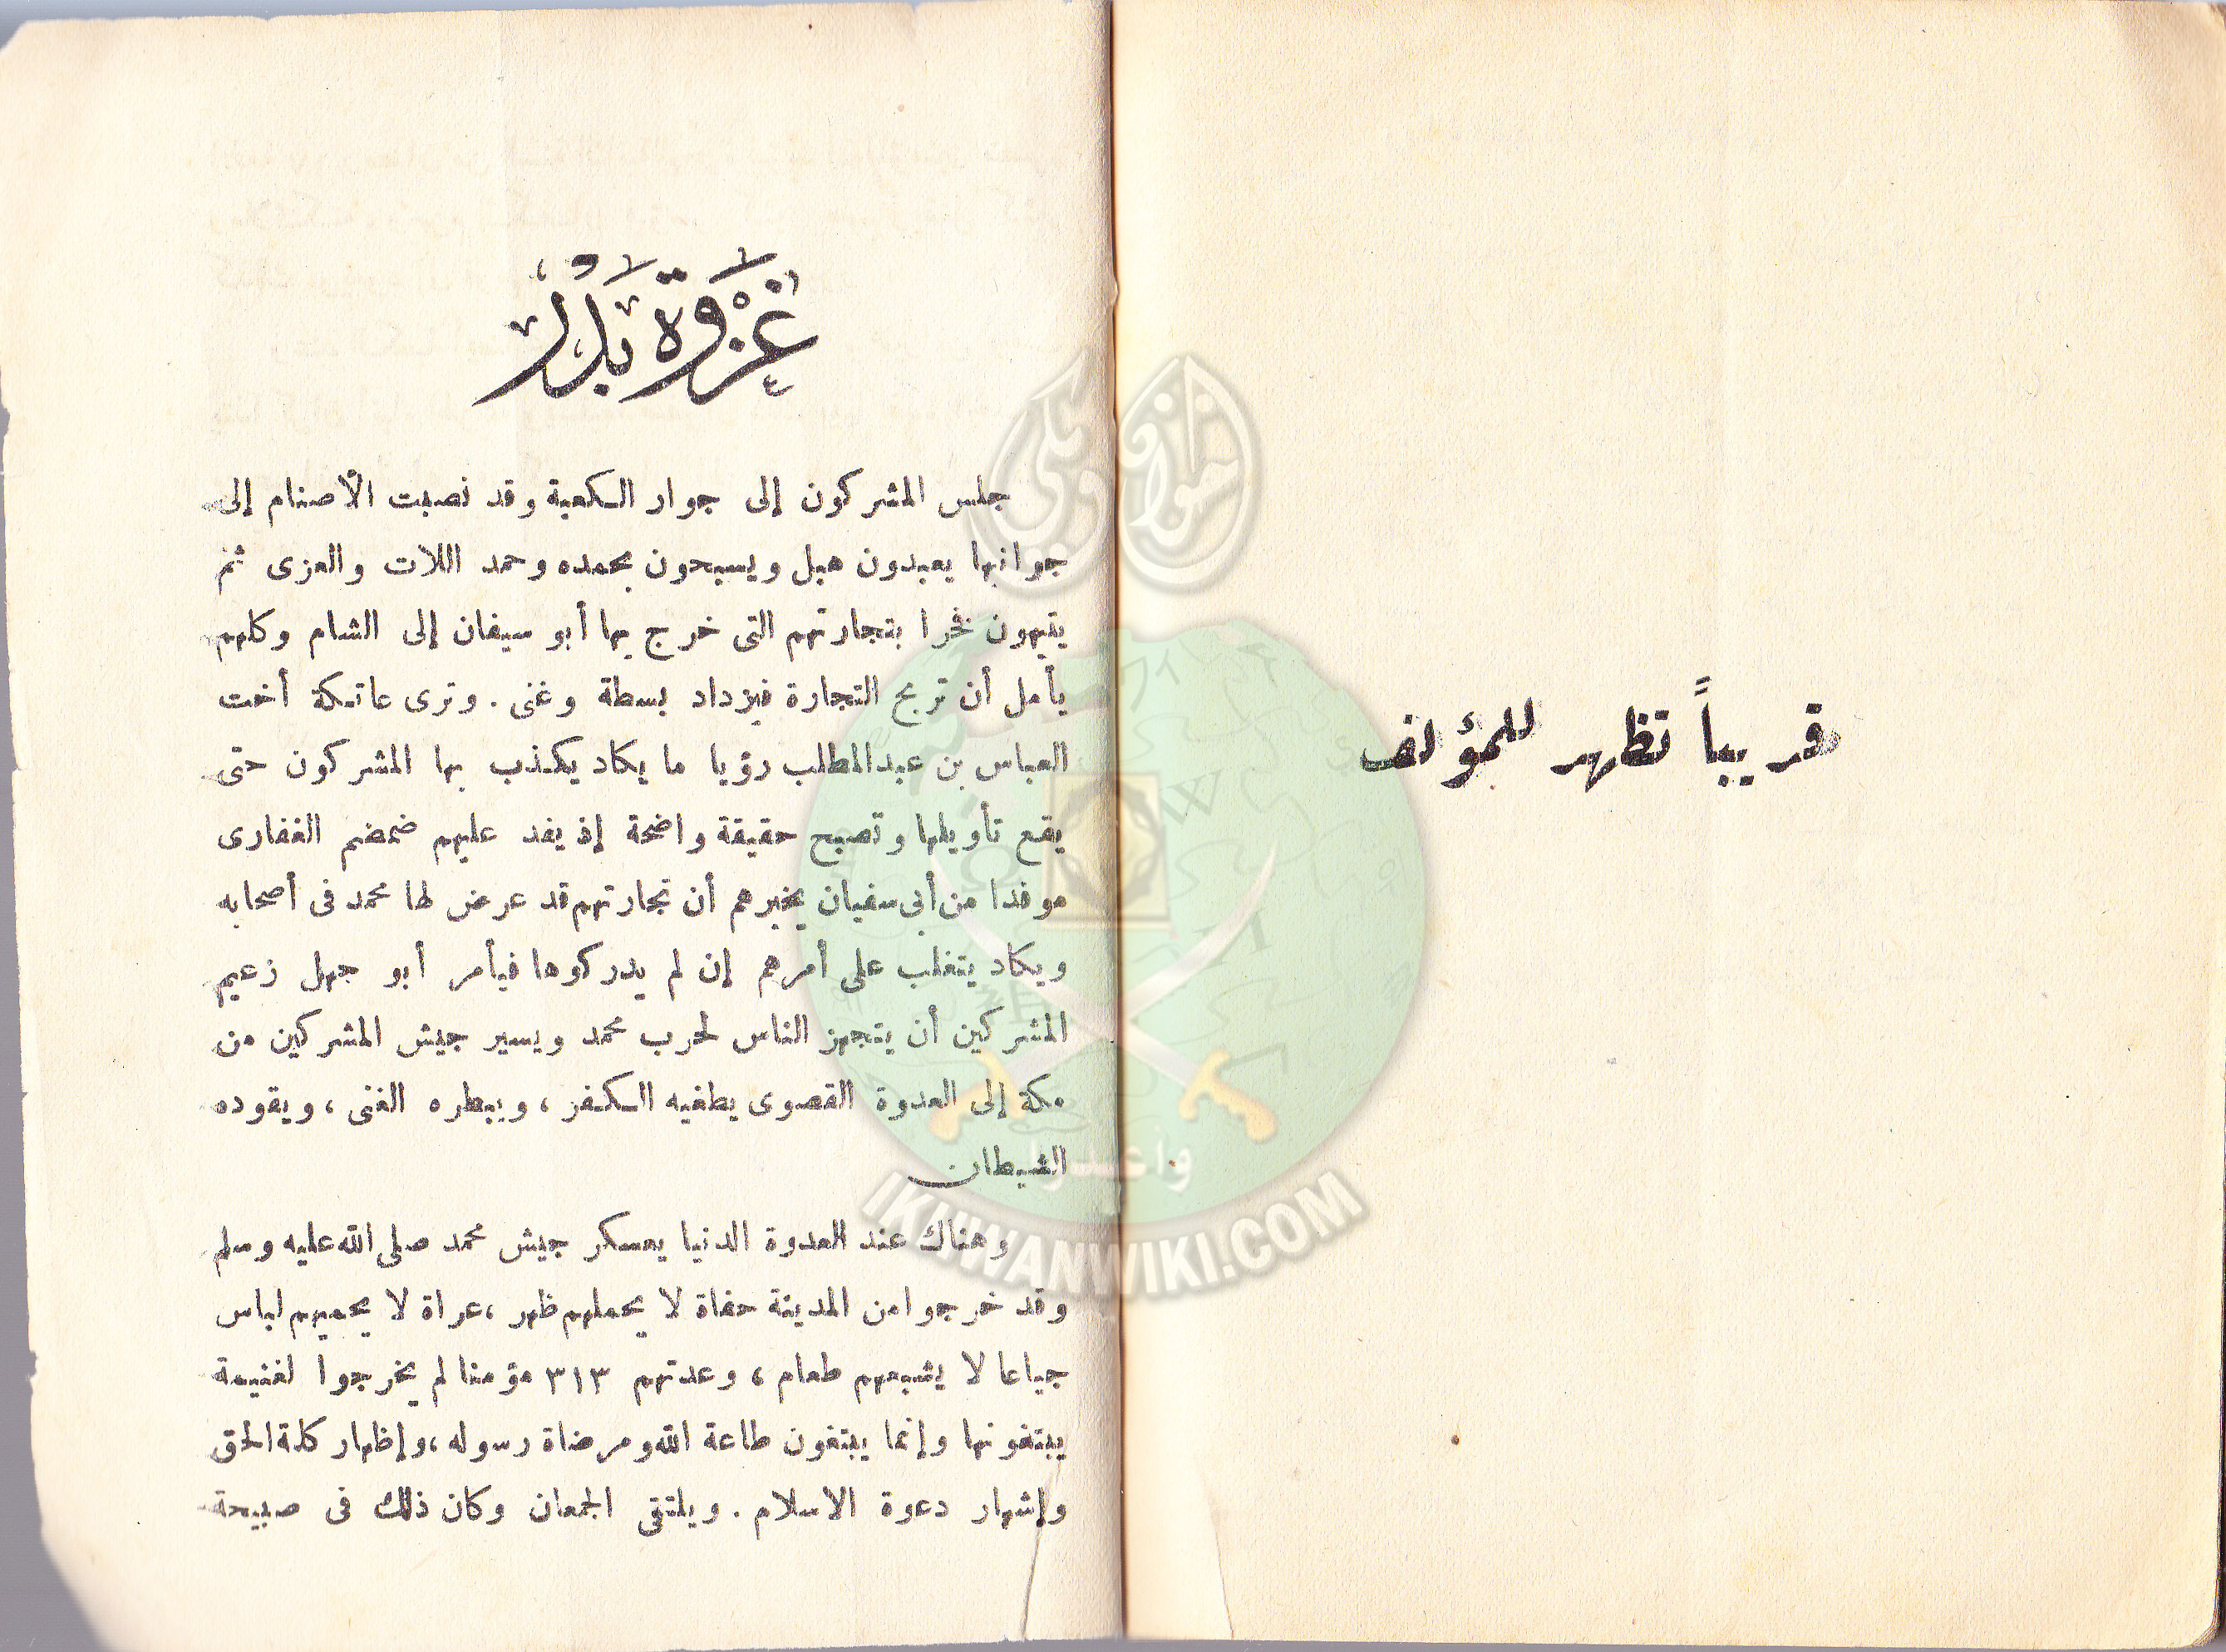 قريباً تظهر للمؤلف
غَزْوَة بَدْر
جلس المشركون إلى جوار الكعبة وقد نصبت الأصنام إلى
جوانبها يعبدون هبل ويسبحون بحمده وحمد اللات والعزى ثم
يتيهون فخرا بتجارتهم التى خرج بها أبو سيفان إلى الشام وكلهم
يأمل أن تربح التجارة فيزداد بسطة وغنى . وترى عاتكة أخت
العباس بن عبد المطلب رؤيا ما يكاد يكذب بها المشركون حتى
يقع تأويلها وتصبح حقيقة واضحة إذ يفد عليهم ضمضم الغفارى
موفدا من أبى سفيان يخبرهم أن تجارتهم قد عرض لها محمد فى أصحابه
ويكاد يتغلب على أمرهم إن لم يدركوها فيأمر أبو جهل زعيم
المشركين أن يتجهز الناس لحرب محمد ويسير جيش المشركين من
مكة إلى العدوة القصوى يطغيه الكفر ، ويبطره الغنى ، ويقوده
الشيطان
وهناك عند العدوة الدنيا يعسكر جيش محمد صلى الله عليه وسلم
وقد خرجوا من المدينة حفاة لا يحملهم ظهر ، عراة لا يحميهم لباس
جياعا لا يشبعهم طعام ، وعدتهم ٣١٣ مؤمنا لم يخرجوا لغنيمة
يبتغونها وإنما يبتغون طاعة الله ومرضاة رسوله ، وإظهار كلمة الحق
وإشهار دعوة الاسلام . ويلتقى الجمعان وكان ذلك فى صبيحة
إخوان ويكي
وأعدوا
IKHWANWIKI.COM